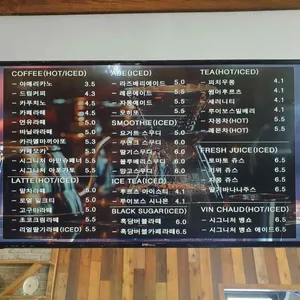 COFFEE(HOT/ICED)
- 아메리카노 3.5
- 드립커피 4.3
- 카푸치노 4.5
- 카페라떼 4.5
- 연유라떼 5.0
- 바닐라라떼 5.0
- 카라멜마끼아또 5.0
- 카페모카 5.3
- 시그니처 아인슈페너 5.5
- 시그니처 아포가토 5.5
LATTE(HOT/ICED)
- 말차라떼 5.0
- 로얄 밀크티 5.0
- 고구마라떼 5.0
- 초코크림라떼 5.0
- 리얼딸기라떼(ICED) 5.5
ADE(ICED)
- 라즈베리에이드 5.0
- 레몬에이드 5.5
- 자몽에이드 5.5
- 모히또 5.5
SMOOTHIE(ICED)
- 요거트 스무디 5.0
- 쿠앤크 스무디 5.0
- 딸기스무디 5.0
- 블루베리스무디 5.0
- 망고스무디 5.0
ICE TEA(ICED)
- 루이보스 시나몬 4.1
BLACK SUGAR(ICED)
- 흑당버블라떼 6.0
- 흑당버블카페라떼 6.5
TEA(HOT/ICED)
- 피치우롱 4.1
- 썸머루츠 4.1
- 세러니티 4.1
- 루이보스밀베리 4.1
- 자몽차(HOT) 5.5
- 레몬차(HOT) 5.5
FRESH JUICE(ICED)
- 토마토 쥬스 6.5
- 키위 쥬스 6.5
- 자몽 쥬스 6.5
- 딸기바나나쥬스 6.5
VIN CHAUD(HOT/ICED)
- 시그니처 뱅쇼 6.5
- 시그니처 뱅쇼 에이드 6.5